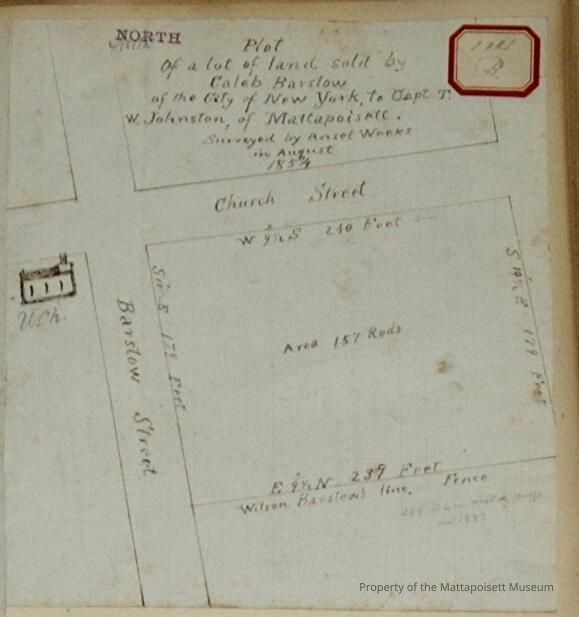 NORTH
Plot
Of a lot of land sold by
Caleb Barstow
of the City of New York, to Capt T.
W. Johnston, of Mattapoisett.
Surveyed by Ansel Weeks
in August
1854
Church Street
W 9½ S 240 Feet
S 11° E 179 Feet
S 10½ E 179 Feet
Barstow Street
Area 157 Rods
E 9½ N 239 Feet
Wilson Barstow's line. Fence
Property of the Mattapoisett Museum